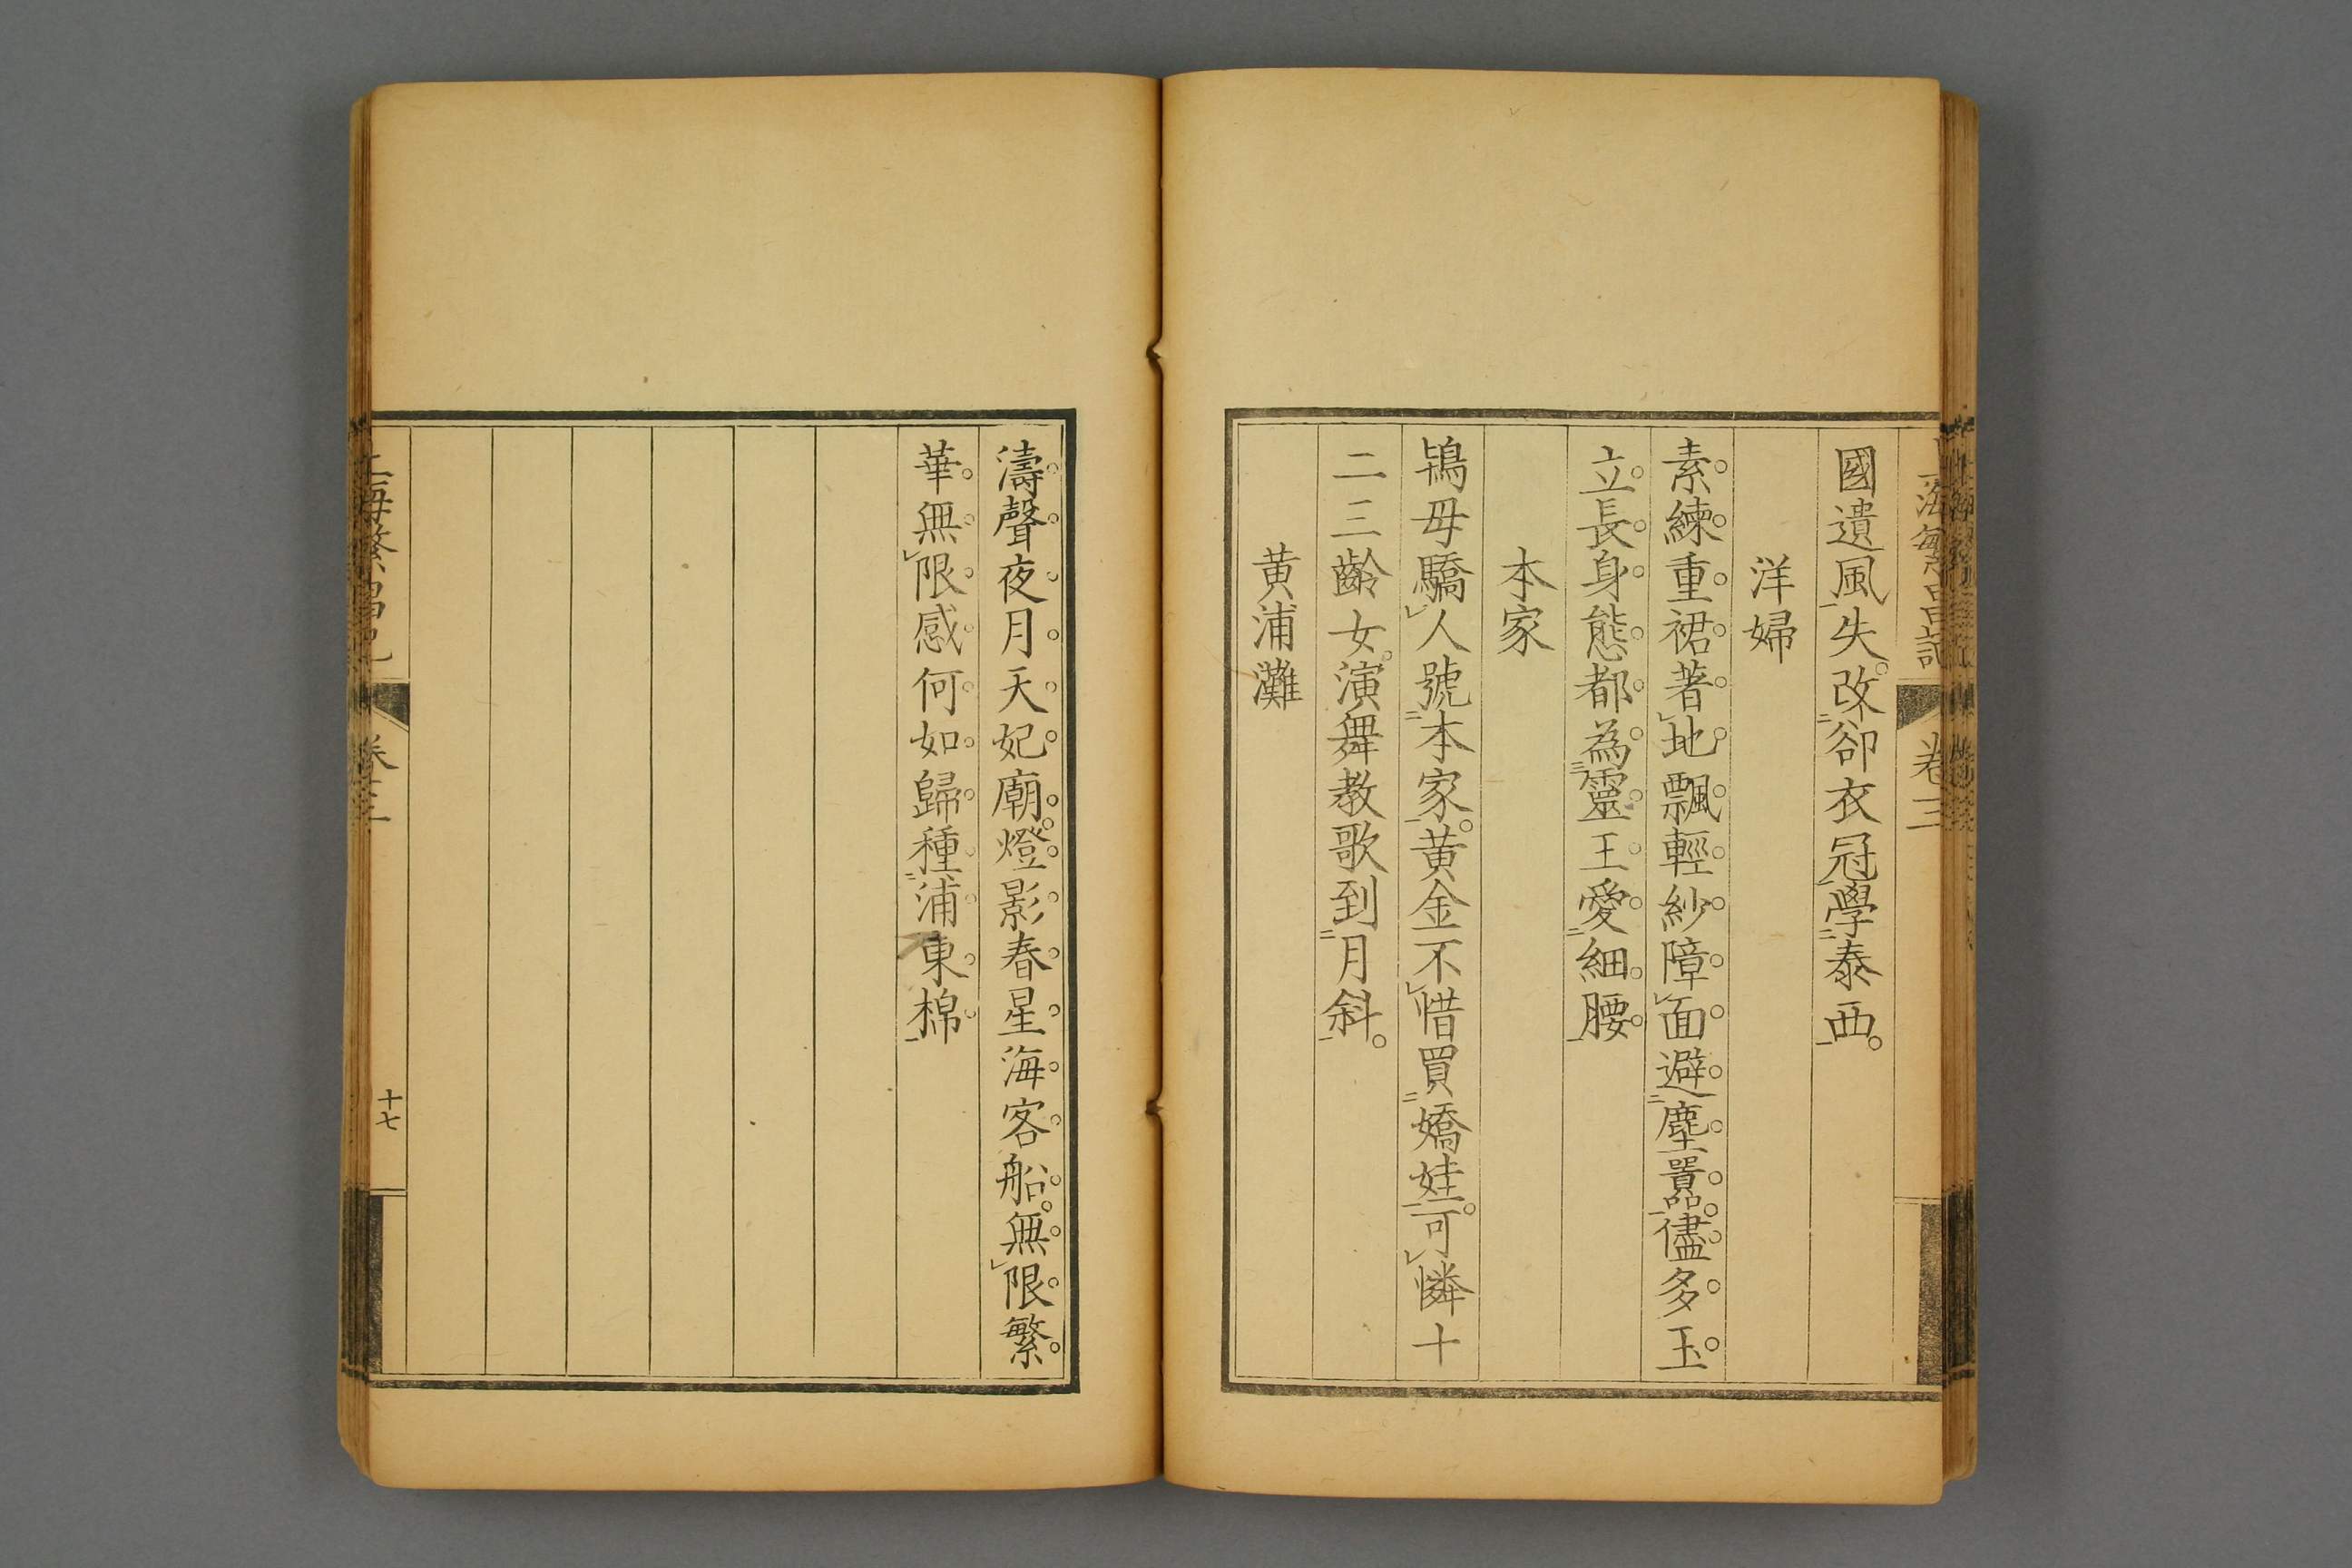 上海繁昌記
卷三
國遺風失。改卻衣冠學泰西。
洋婦
素練重裙著地飄輕紗障面避塵囂。儘多玉
立長身態都為靈王愛細腰
本家
鴇母驕人號本家。黃金不惜買嬌娃。可憐十
二三齡女。演舞教歌到月斜。
黃浦灘
濤聲夜月天妃廟。燈影春星海客船。無限繁
華無限感何如歸種浦東棉
上海繁昌記
卷三
十七